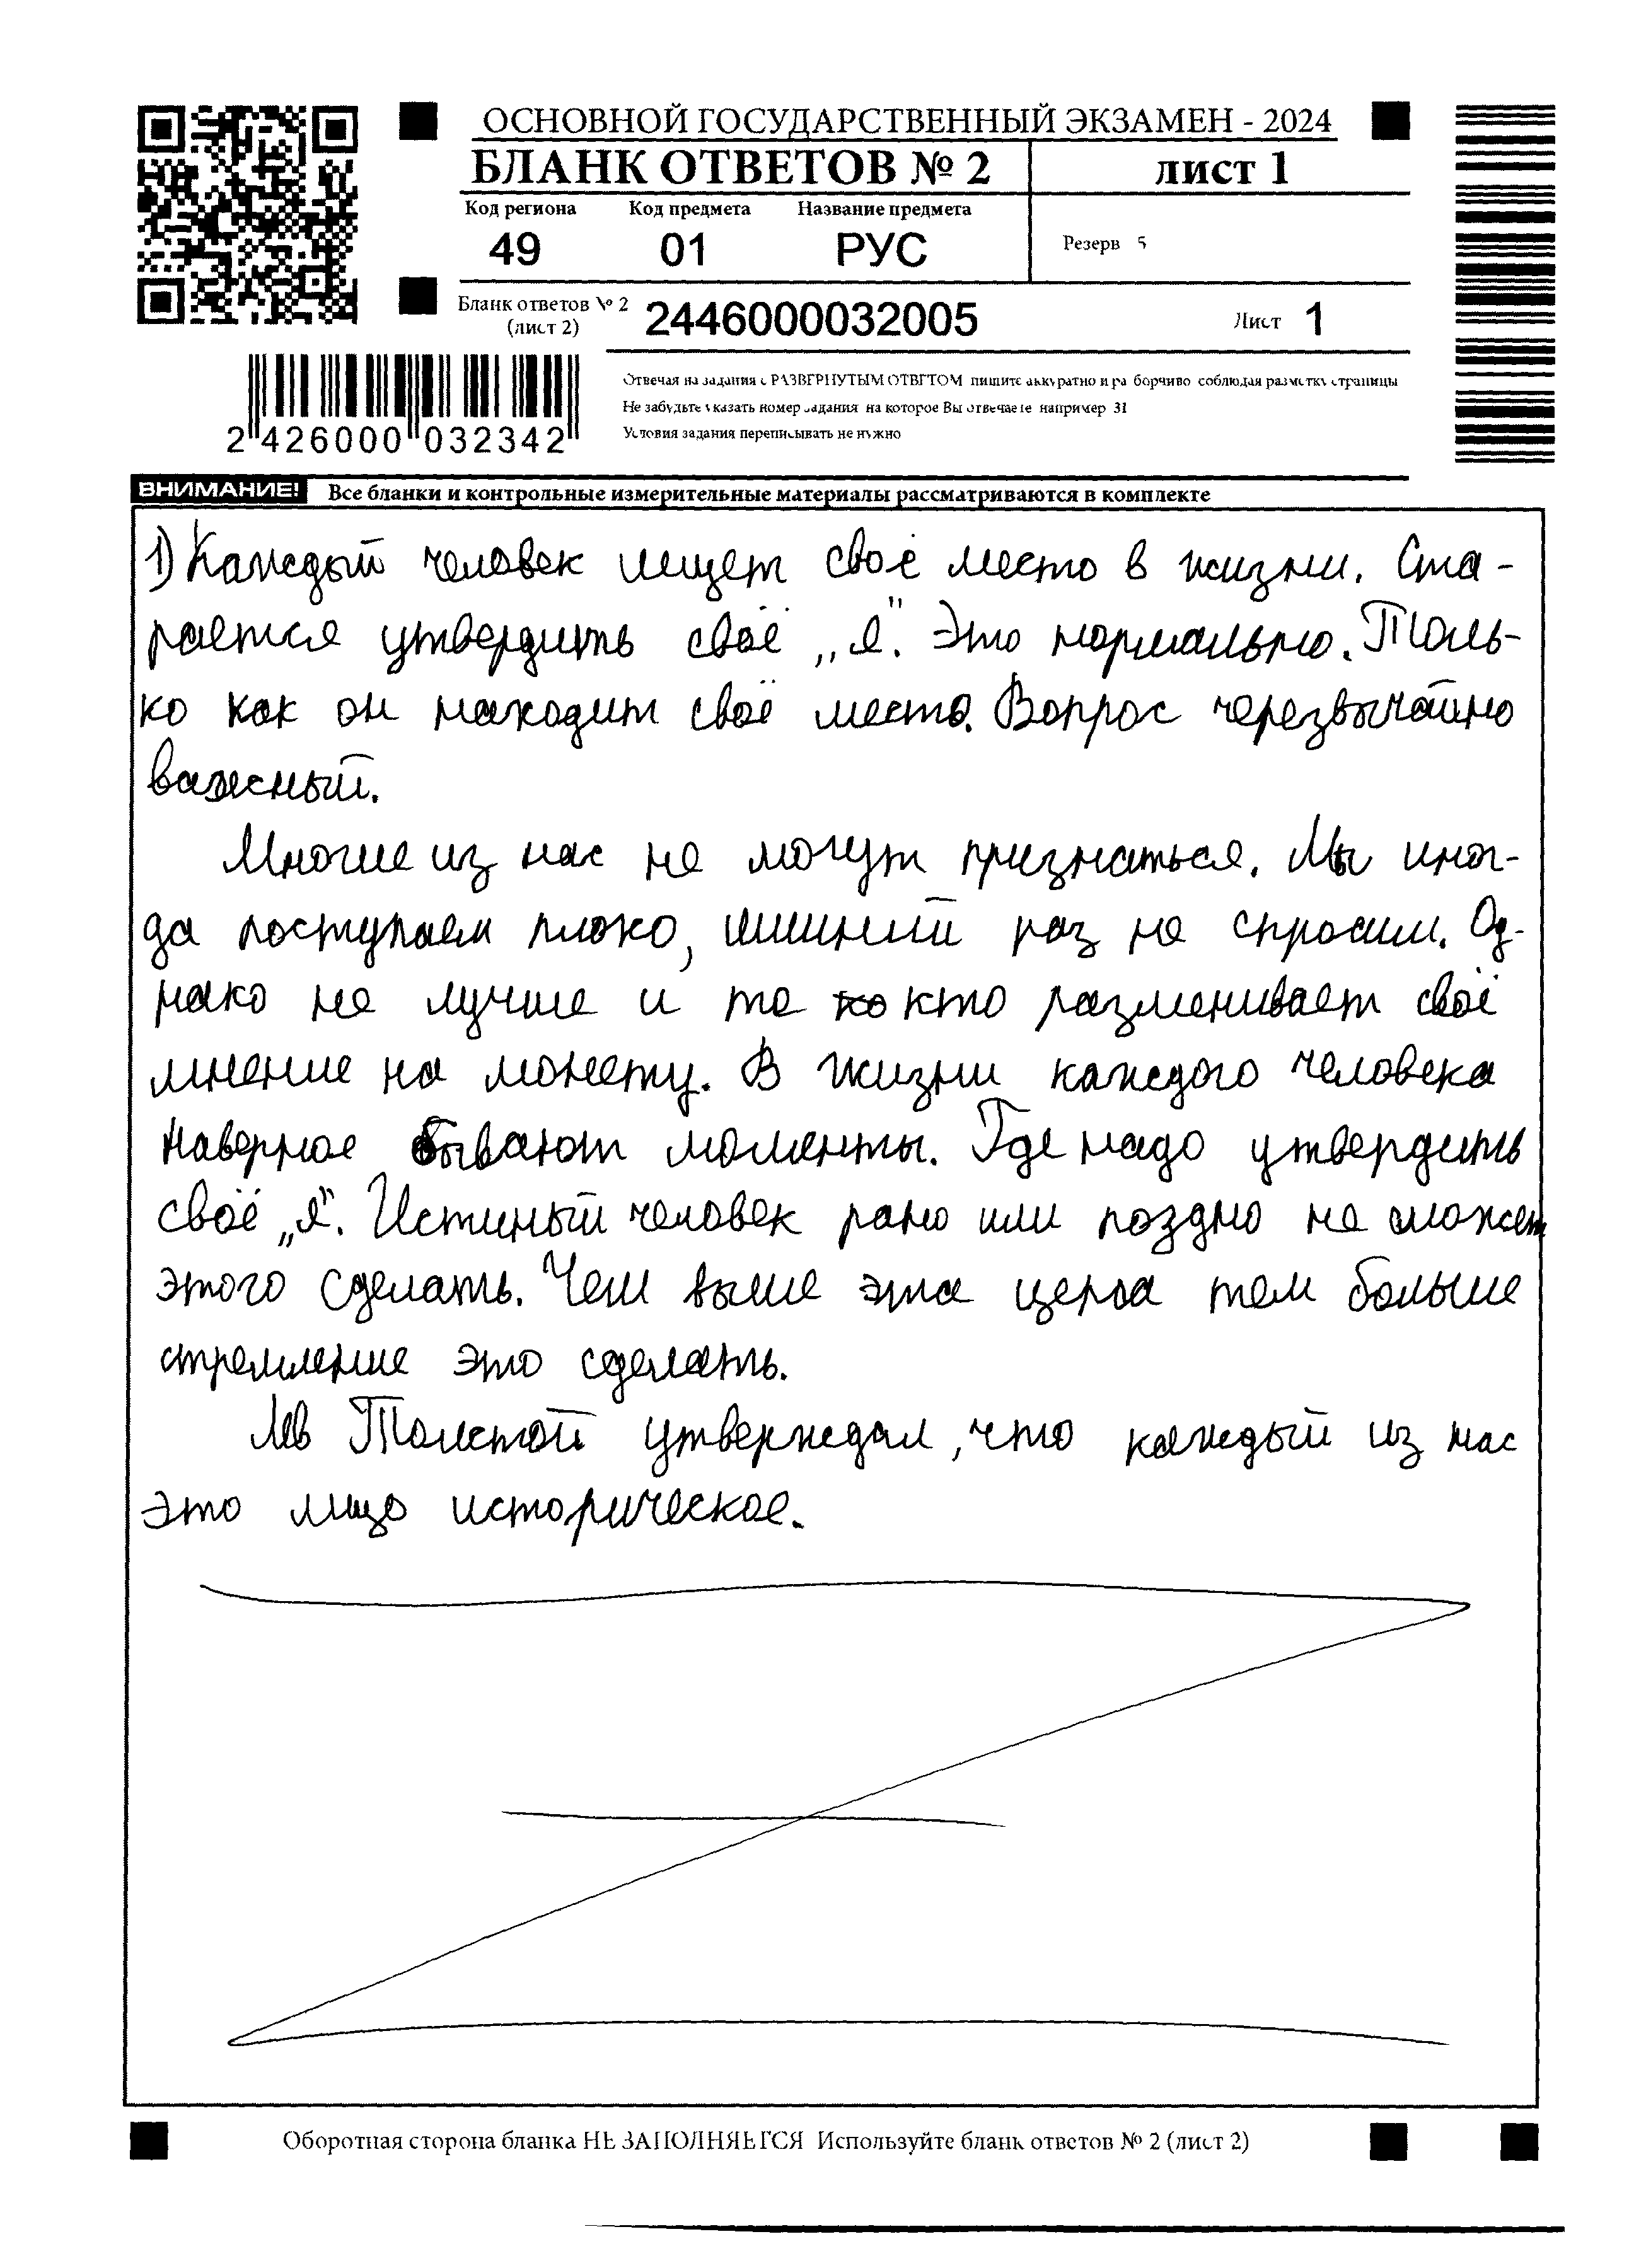 ОСНОВНОЙ ГОСУДАРСТВЕННЫЙ ЭКЗАМЕН - 2024
БЛАНК ОТВЕТОВ № 2
лист 1
Код региона Код предмета Название предмета
49 01 РУС
Резерв 5
Бланк ответов № 2
(лист 2)
2446000032005
Лист 1
2 426000 032342
Отвечая на задания с РАЗВЕРНУТЫМ ОТВЕТОМ пишите аккуратно и разборчиво соблюдая разметку страницы
Не забудьте указать номер задания на которое Вы отвечаете например 31
Условия задания переписывать не нужно
ВНИМАНИЕ! Все бланки и контрольные измерительные материалы рассматриваются в комплекте
1) Каждый человек ищет своё место в жизни. Ста-
рается утвердить своё „я". Это нормально. Толь-
ко как он находит своё место. Вопрос черезвычайно
важный.
Многие из нас не могут признаться. Мы иног-
да поступаем плохо, лишний раз не спросили. Од-
нако не лучше и те ко кто разменивает своё
мнение на монету. В жизни каждого человека
наверное бывают моменты. Где надо утвердить
своё „я". Истиный человек рано или поздно не сможет
этого сделать. Чем выше эта цена тем больше
стремление это сделать.
Лев Толстой утверждал, что каждый из нас
это лицо историческое.
Оборотная сторона бланка НЕ ЗАПОЛНЯЕТСЯ Используйте бланк ответов № 2 (лист 2)